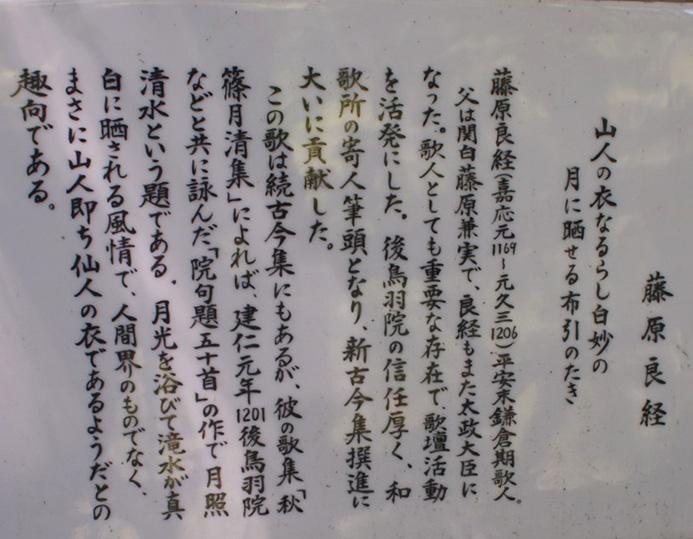 藤原良経
山人の衣なるらし白妙の
月に晒せる布引のたき
藤原良経(嘉応元1169～元久三1206)平安末鎌倉期歌人。
父は関白藤原兼実で、良経もまた太政大臣に
なった。歌人としても重要な存在で、歌壇活動
を活発にした。後鳥羽院の信任厚く、和
歌所の寄人筆頭となり、新古今集撰進に
大いに貢献した。
この歌は続古今集にもあるが、彼の歌集「秋
篠月清集」によれば、建仁元年1201後鳥羽院
などと共に詠んだ「院句題五十首」の作で月照
清水という題である。月光を浴びて滝水が真
白に晒される風情で、人間界のものでなく、
まさに山人即ち仙人の衣であるようだとの
趣向である。